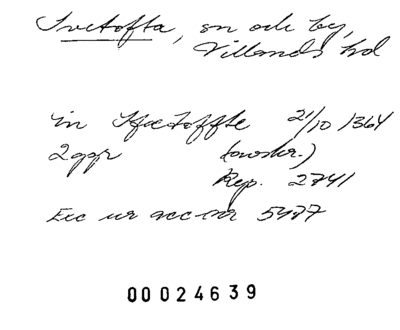 Ivetofta, sn och by,
Villands hd
in Hfætoffte 21/10 1364
2 ggr (avskr.)
Rep. 2741
Exc ur acc nr 5427
00024639